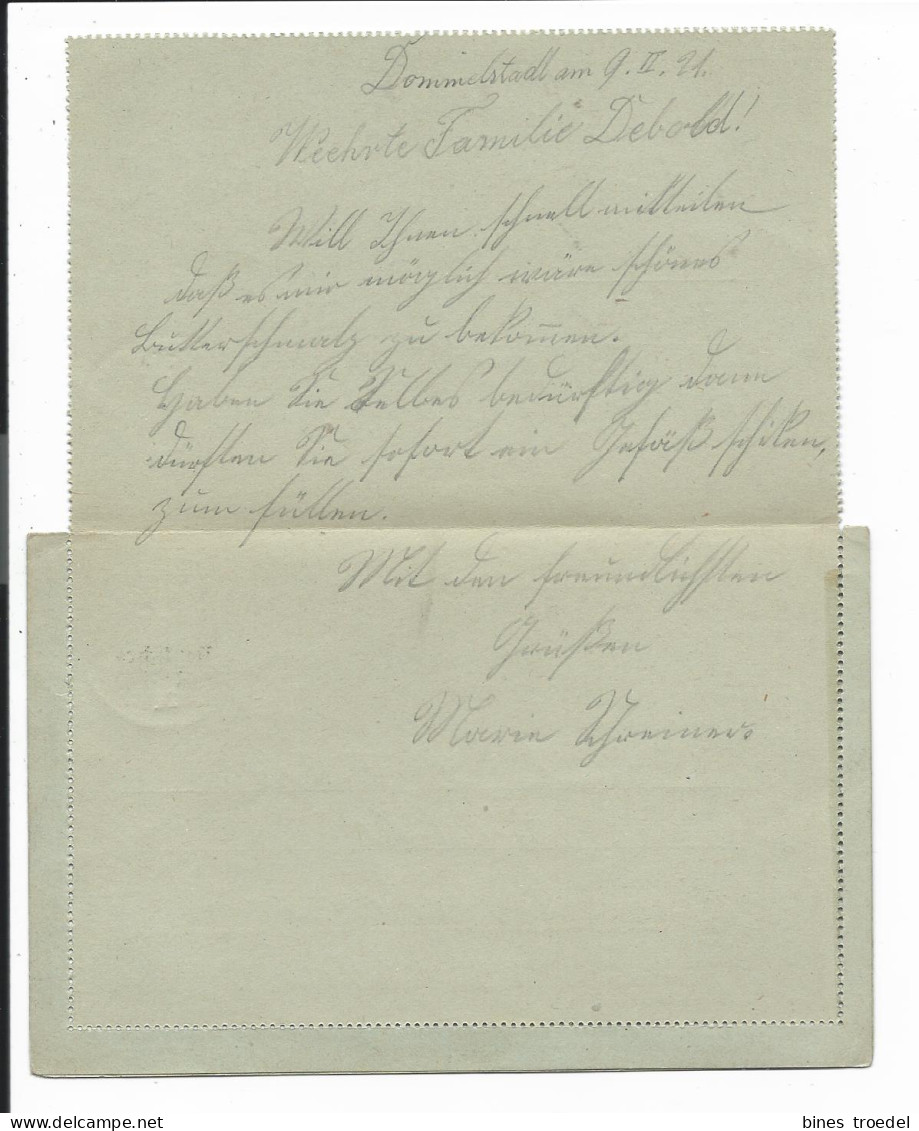 Dommelstadl am 9. II. 21.
Weehrte Familie Debold!
Will Ihnen schnell mitteilen
daß es mir möglich wäre schönes
Butterschmalz zu bekommen.
Haben Sie Selbes bedürftig dann
dürften Sie sofort ein Gefäß schiken,
zum füllen.
Mit den freundlichsten
Grüßen
Marie Schreiner.
bines troedel